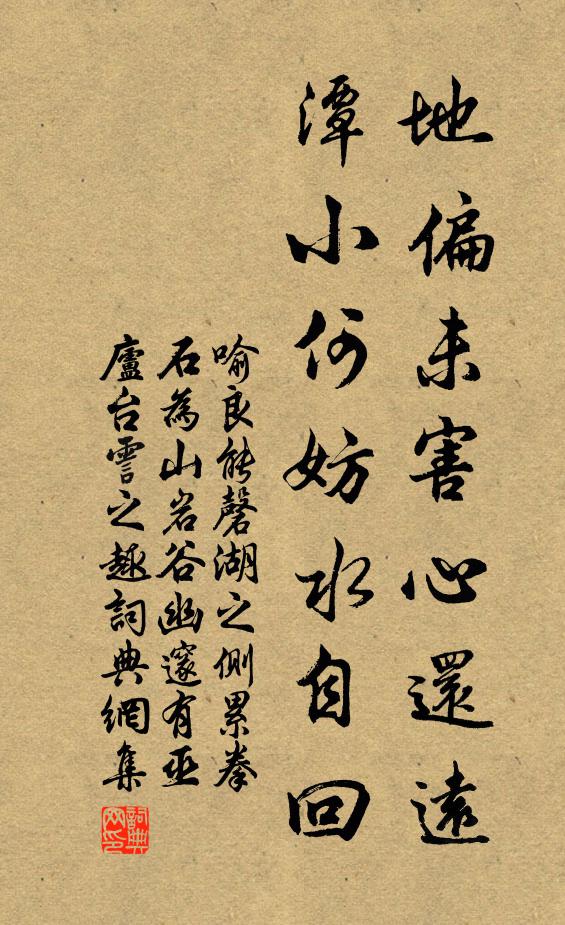 地偏未害心還遠
潭小何妨水自回
喻良能磬湖之側累拳
石為山岩谷幽邃有巫
廬台雲之趣詞典網集
詞典
网印